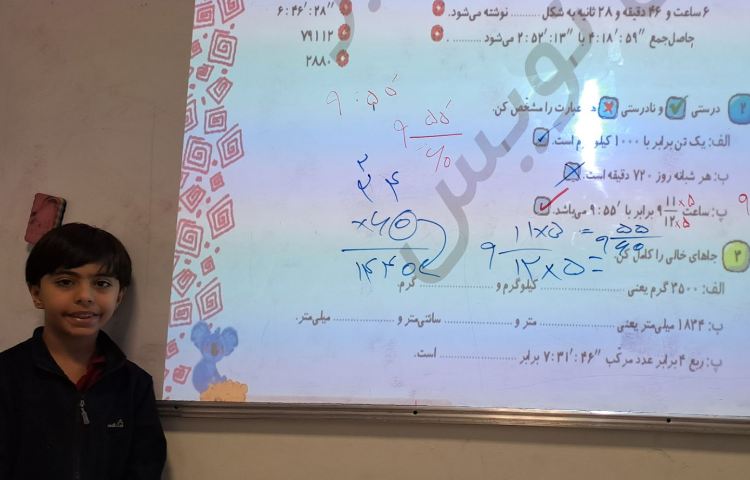 ۶ ساعت و ۴۶ دقیقه و ۲۸ ثانیه به شکل .......... نوشته می‌شود.
۶:۴۶′:۲۸″
حاصل جمع ۴:۱۸′:۵۹″ با ۲:۵۲′:۱۳″ می‌شود .......... .
۷۹۱۱۲
۲۸۸۰
۹:۵۵′
۹ ۵۵/۶۰
۲ درستی ✓ و نادرستی ✗ عبارت را مشخص کن.
الف: یک تن برابر با ۱۰۰۰ کیلوگرم است.
ب: هر شبانه روز ۷۲۰ دقیقه است.
پ: ساعت ۹ ۱۱×۵/۱۲×۵ برابر با ۹:۵۵′ می‌باشد.
۲
۲۴
×۶۰
۱۴۴۰
۹ ۱۱×۵/۱۲×۵ = ۹ ۵۵/۶۰
۳ جاهای خالی را کامل کن.
الف: ۲۵۰۰ گرم یعنی .......... کیلوگرم و .......... گرم.
ب: ۱۸۳۴ میلی‌متر یعنی .......... متر و .......... سانتی‌متر و .......... میلی‌متر.
پ: ربع ۴ برابر عدد مرکّب ۷:۳۱′:۴۶″ برابر .......... است.